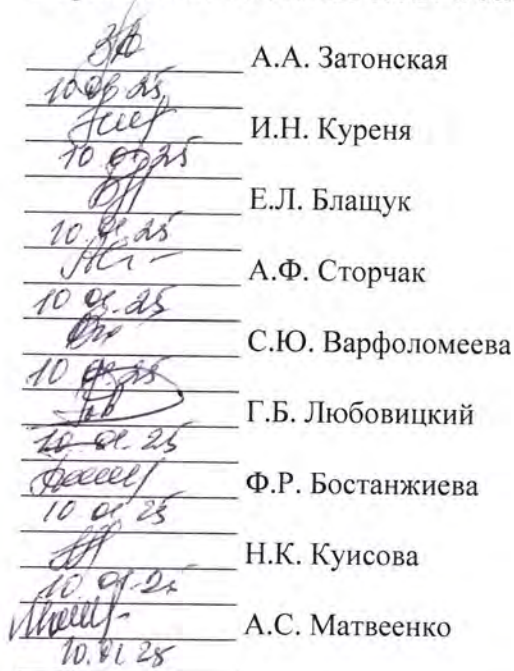 А.А. Затонская
10.09.25
И.Н. Куреня
10.01.25
Е.Л. Блащук
10.01.25
А.Ф. Сторчак
10.01.25
С.Ю. Варфоломеева
10.01.25
Г.Б. Любовицкий
10.01.25
Ф.Р. Бостанжиева
10.01.25
Н.К. Куисова
10.01.25
А.С. Матвеенко
10.01.25